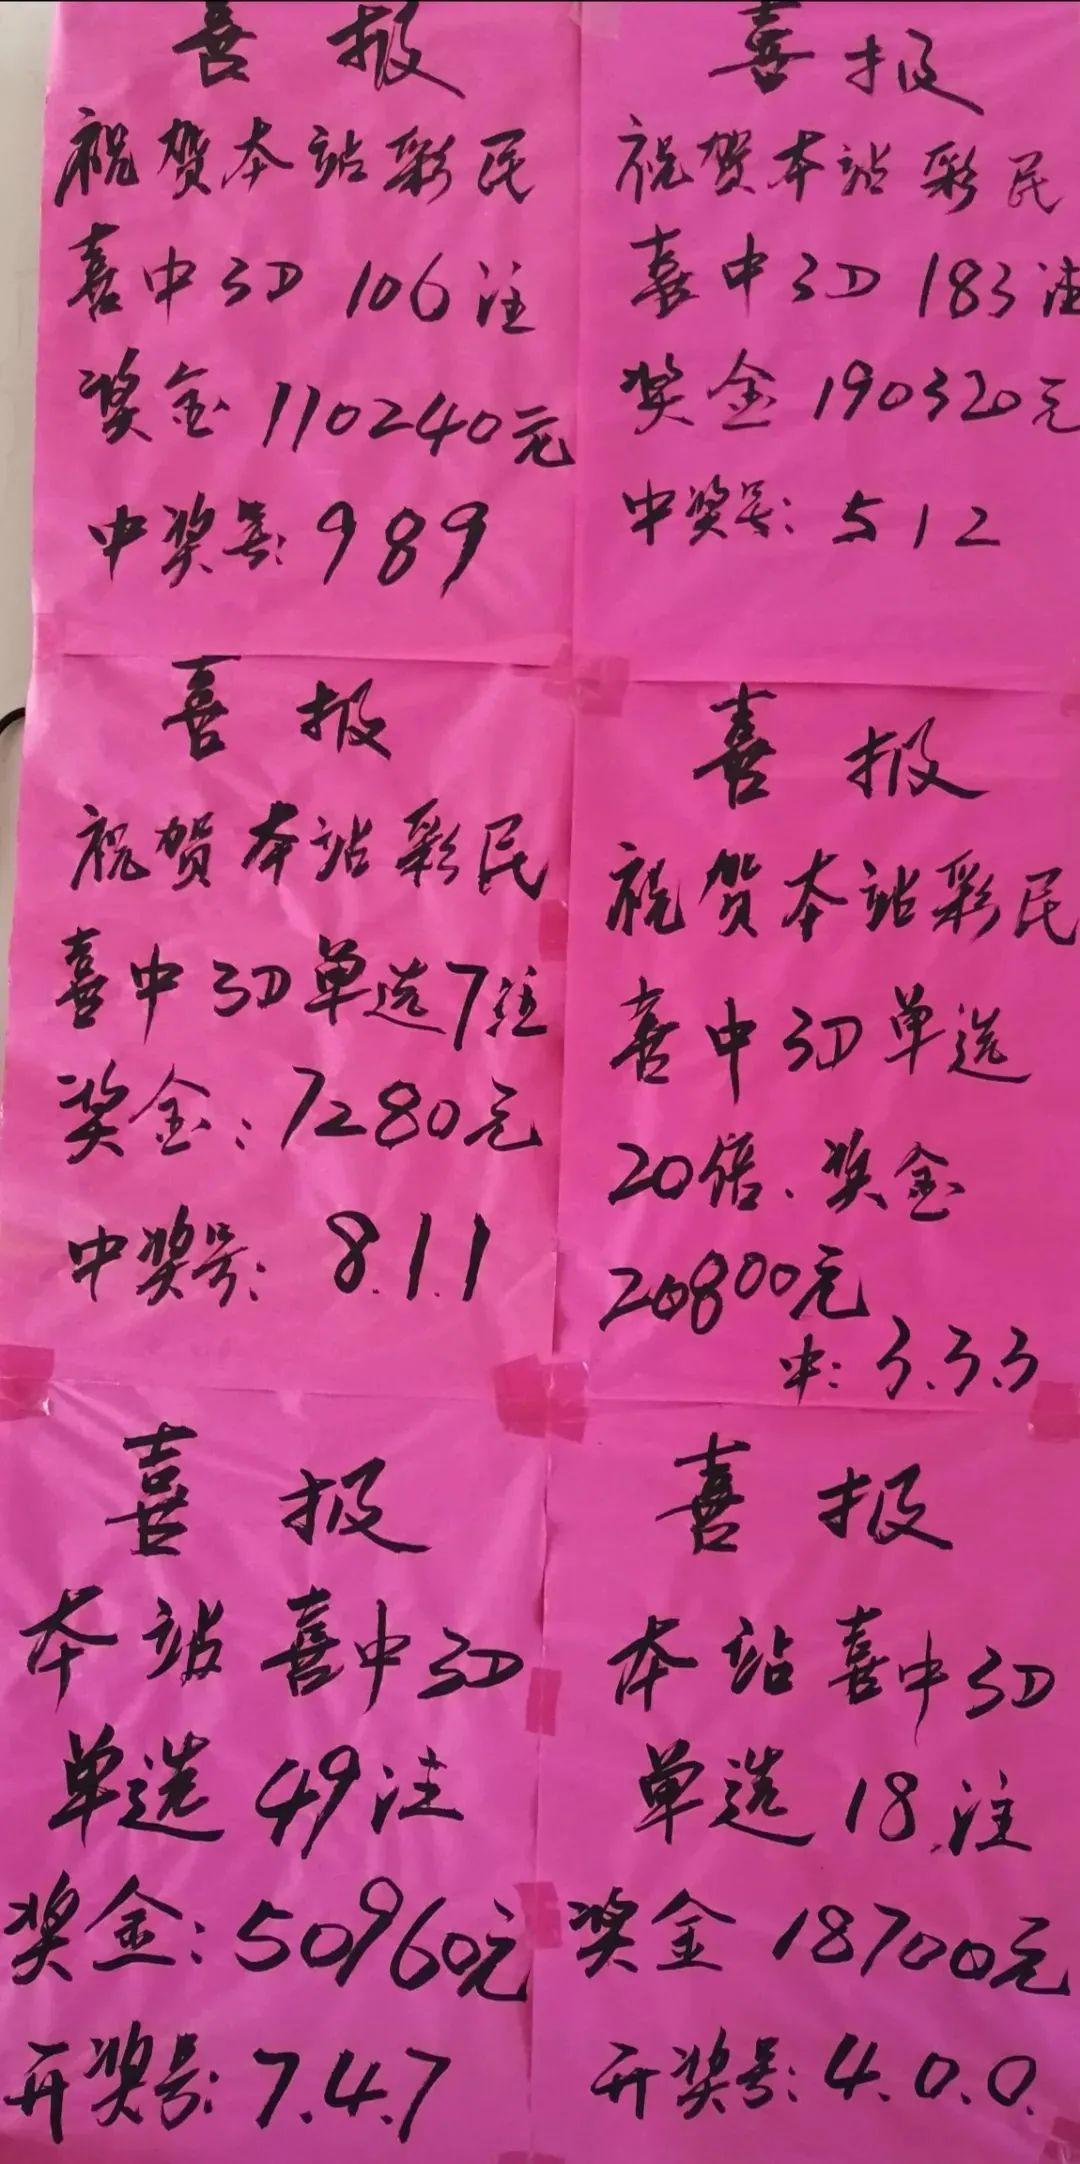 喜报
祝贺本站彩民
喜中3D 106注
奖金110240元
中奖号:989
喜报
祝贺本站彩民
喜中3D 183注
奖金190320元
中奖号:512
喜报
祝贺本站彩民
喜中3D单选7注
奖金:7280元
中奖号:8.1.1
喜报
祝贺本站彩民
喜中3D单选
20倍.奖金
20800元
中:3.3.3
喜报
本站喜中3D
单选49注
奖金:50960元
开奖号:7.4.7
喜报
本站喜中3D
单选18注
奖金18700元
开奖号:4.0.0.